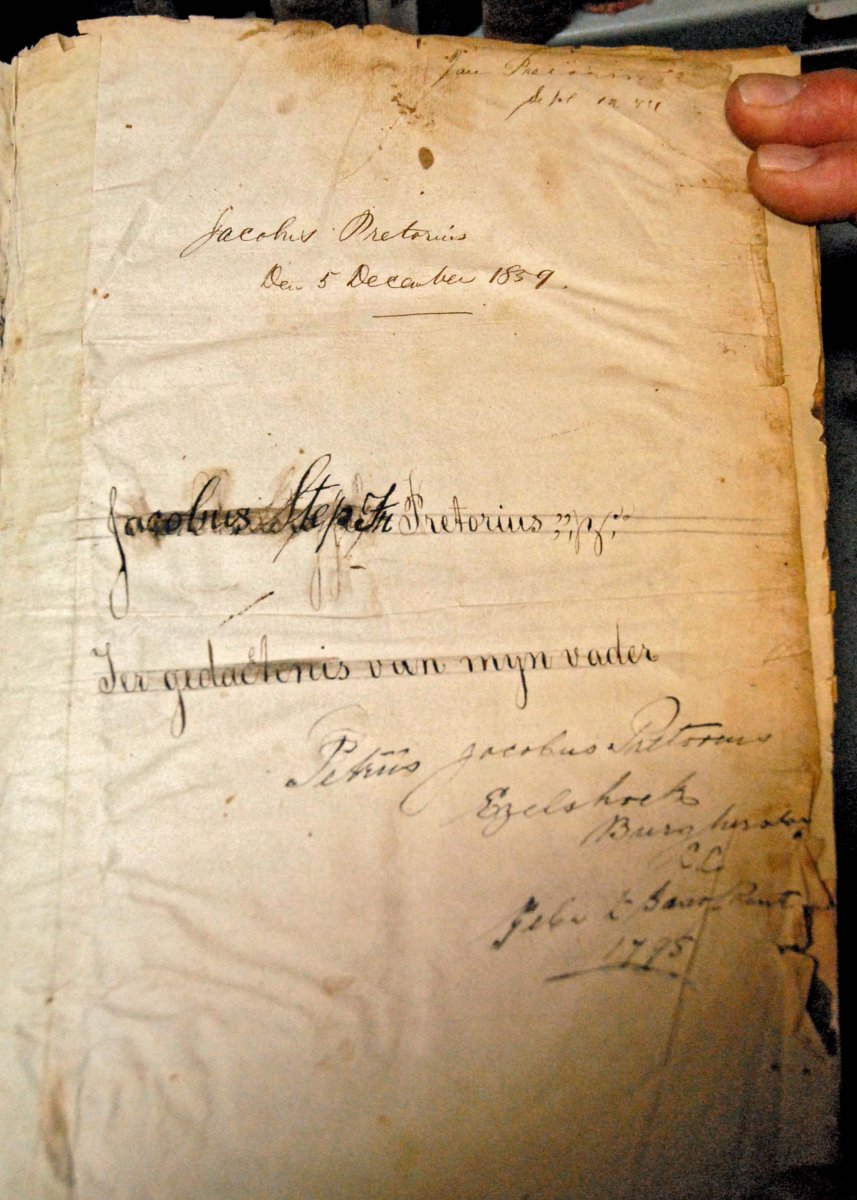 Jan
Sept 12
Jacobus Pretorius
Den 5 December 1859.
Jacobus Step Fr Pretorius
Ter gedactenis van myn vader
Petrus Jacobus Pretorius
Ezelshoek
Burghersdorp
CC
1795